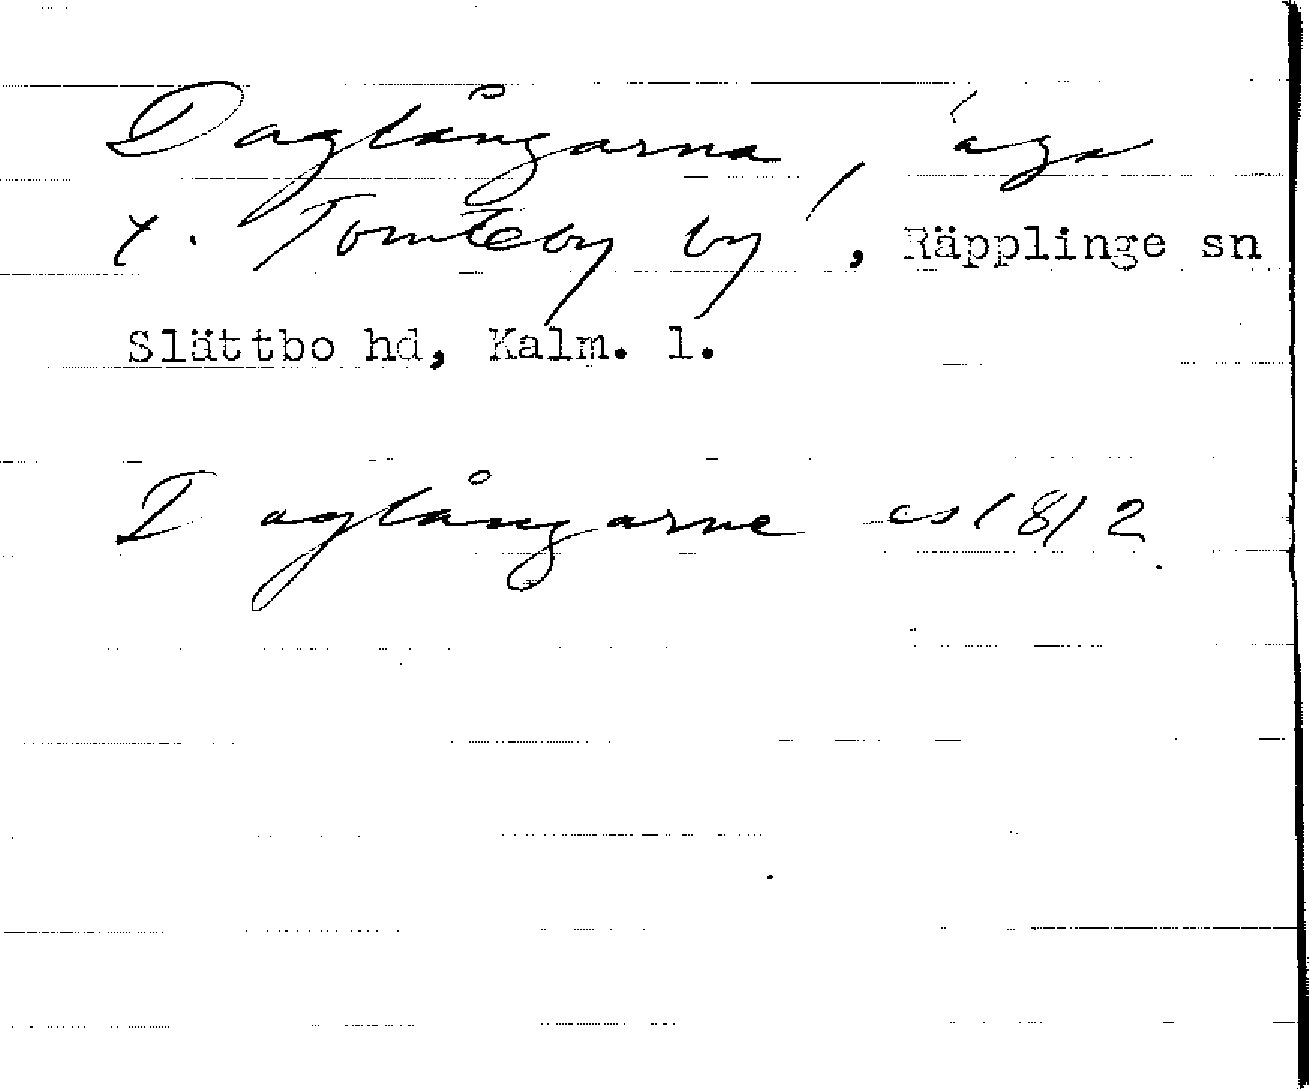 Daglångarna, äga
t. Tomteby by, Räpplinge sn
Slättbo hd, Kalm. l.
Daglångarne cs 1812